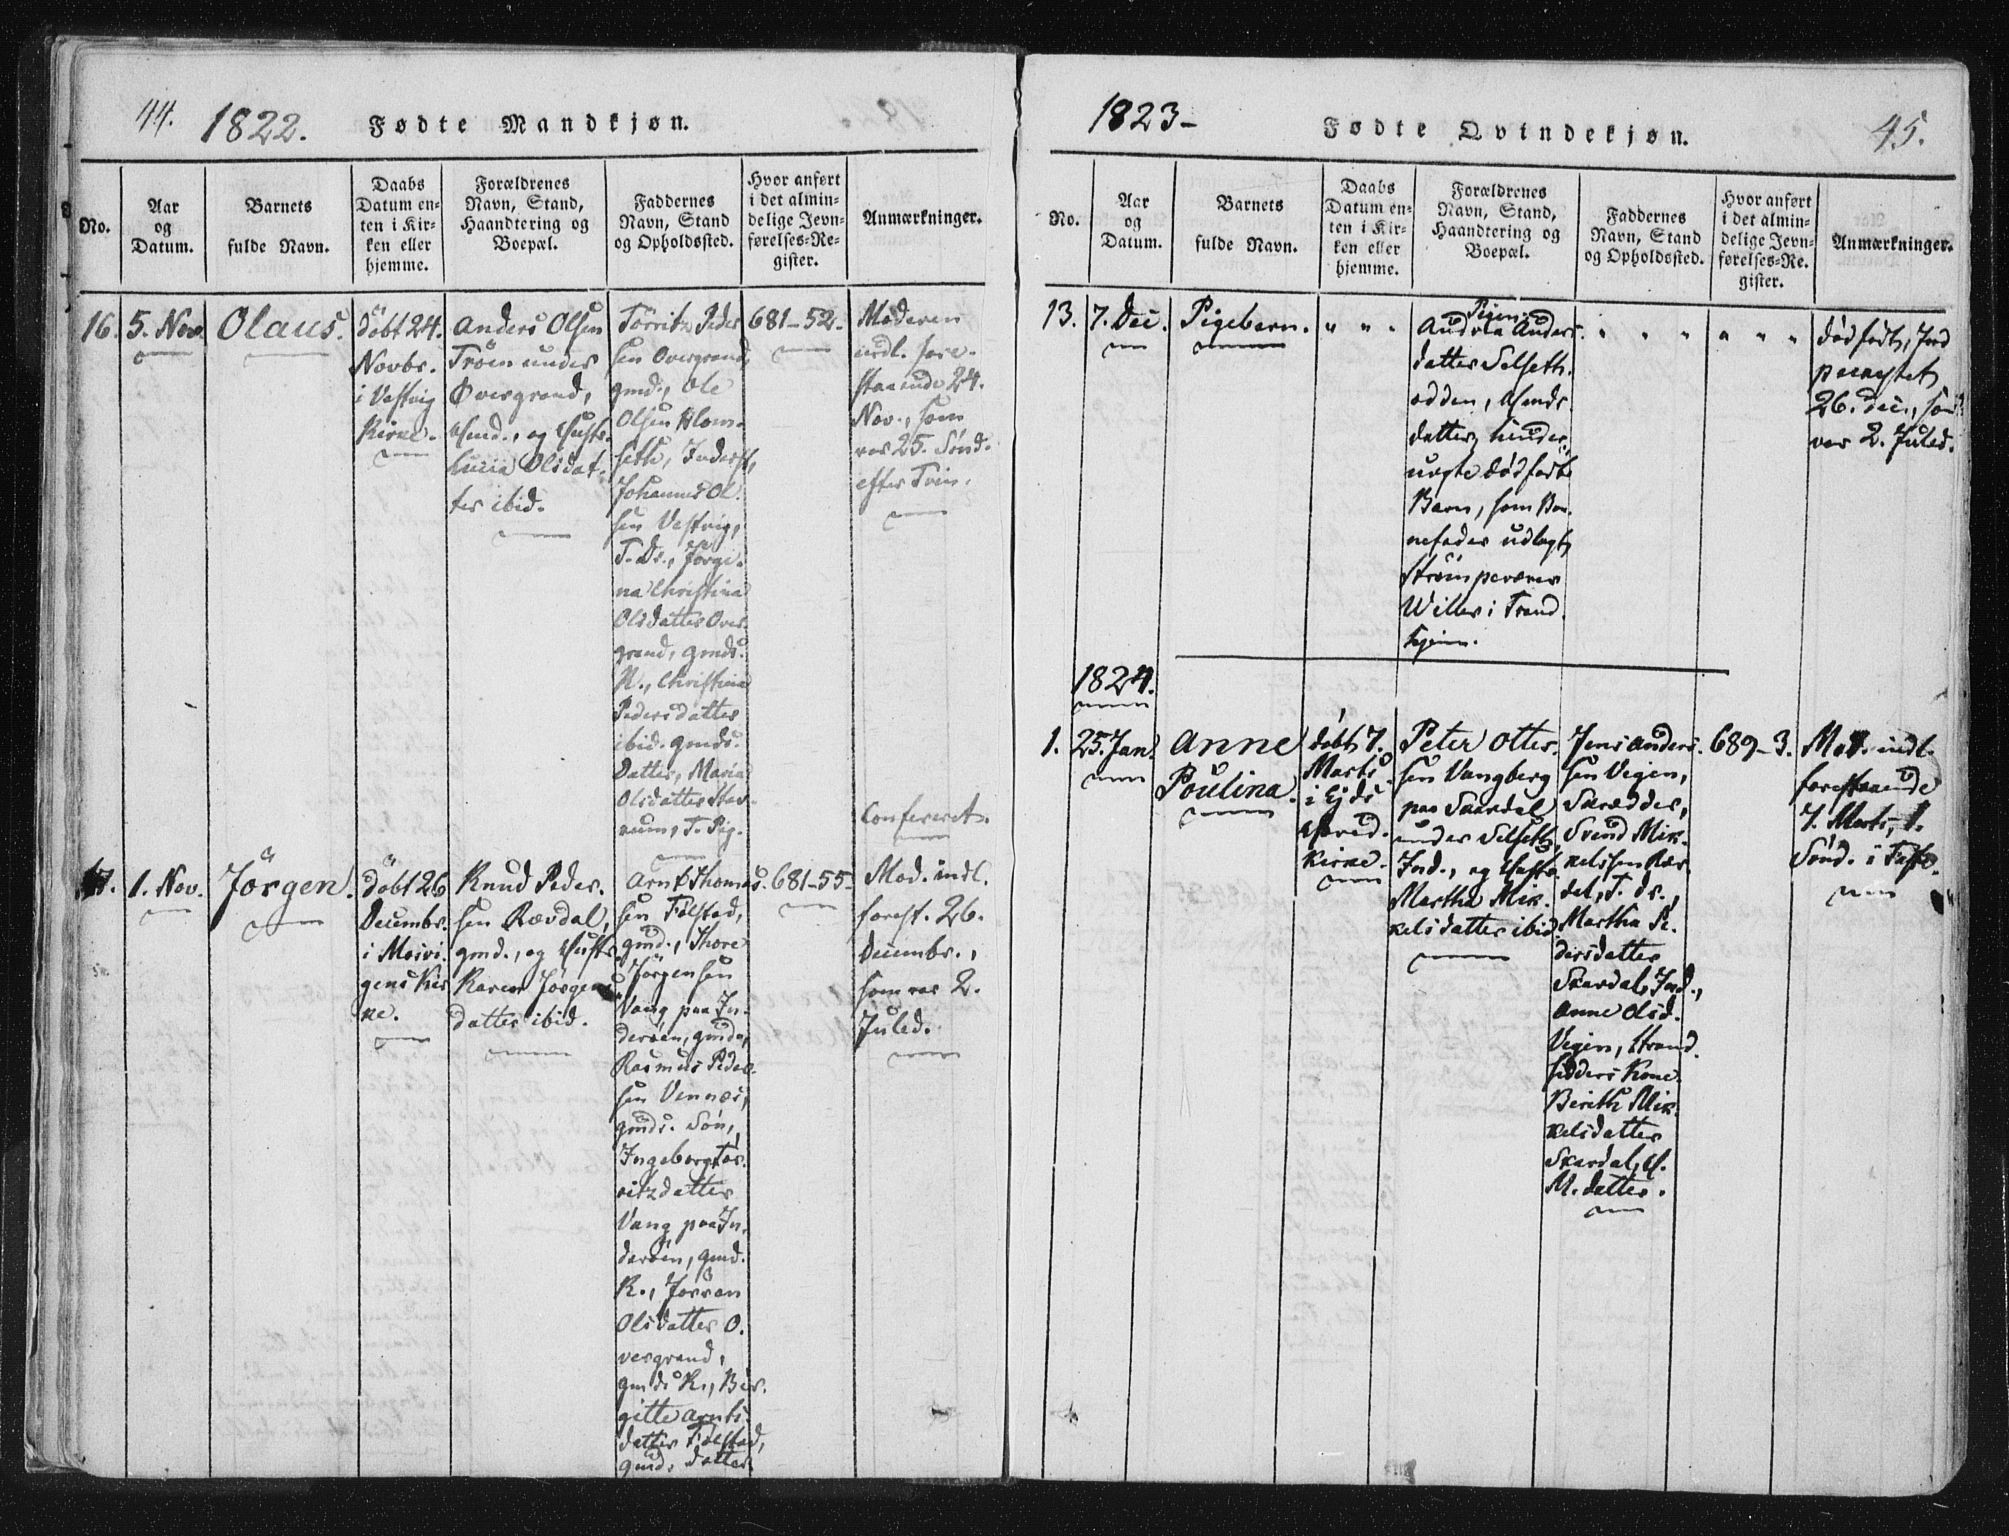 44. 1822. Fødte Mandkjøn.
No.
Aar
og
Datum.
Barnets
fulde Navn.
Daabs
Datum en-
ten i Kir-
ken eller
hjemme.
Forældrenes
Navn, Stand,
Haandtering og
Boepæl.
Faddernes
Navn, Stand
og Opholdssted.
Hvor anført
i det almin-
delige Jevn-
førelses-Re-
gister.
Anmærkninger.
16. 5. Nov.
Olaus.
döbt 24.
Novbr.
i Vestvig
Kirke.
Anders Olsen
Tröen under
Overgrand,
og Hustr.
Olsdat-
ter ibid.
Törritz Peder
sen Overgrand,
gmd., Ole
Olsen Blom-
seth, Inderst,
Johannes Ol-
sen Vestvig,
T. Dr., Jörgi-
na Christina
Olsdatter Over-
grand, gmds.
K., Christina
Pedersdatter
ibid. gmds.
Datter, Maria
Olsdatter
T. Pig.
681-52.
Moderen
indl. fore-
staaende 24.
Nov., som
var 25. Sönd.
efter Trin.
Confereret.
17. 1. Nov.
Jörgen.
döbt 26
Decembr.
i Mosvi-
gens Kir
ke.
Knud Peder-
sen Rævdal,
gmd., og Hustr.
Karen Jörgens
datter ibid.
Arnt Thomas-
sen Folstad,
gmd., Thore
Jörgensen
Vang paa In-
deröen, gmd.,
Rasmus Peder-
sen Vennes,
gmds. Sön,
Ingeborg Tör-
ritzdatter
Vang paa In-
deröen, gmd.
K.,
Olsdatter O-
vergrand,
gmds K., Bir-
gitte Arnts-
datter Folstad,
gmds datter.
681-55
Mod. indl.
forest. 26.
Decembr.,
som var 2.
Juled.
1823- Fødte Qvindekjøn. 45.
No.
Aar
og
Datum.
Barnets
fulde Navn.
Daabs
Datum en-
ten i Kir-
ken eller
hjemme.
Forældrenes
Navn, Stand,
Haandtering og
Boepæl.
Faddernes
Navn, Stand
og Opholdssted.
Hvor anført
i det almin-
delige Jevn-
førelses-Re-
gister.
Anmærkninger.
13. 7. Dec.
Pigebarn.
" " "
Pigen
Andrea Anders-
datter Selseth-
odden,
datter, hendes
uægte dödfödte
Barn, som Bar-
nefader udlagt,
Strömpevæver
Willer i Trond-
hjem.
" " " " " "
dödfödt, Jord
paakastet
26. Dec., som
var 2. Juled.
1824.
1. 25. Jan.
Anne
Poulina.
döbt 7.
Marts
i Ytter
kirke.
Peter Otter-
sen Vangberg
paa Skardal
under Selseth,
Ind., og Hustr.
Martha Mik-
kelsdatter ibid.
Jens Anders-
sen Vigen,
Skrædder,
Svend Mik-
kelssen Rær-
dal, T. Dr.,
Martha Pe-
dersdatter
Skardal, Ind.,
Anne Olsd.
Vigen, Strand-
sidders Kone,
Berith Mik-
kelsdatter
Skardal,
M. datter.
689-3.
Mod. indl.
forestaaende
7. Marts, 1.
Sönd. i Faste.